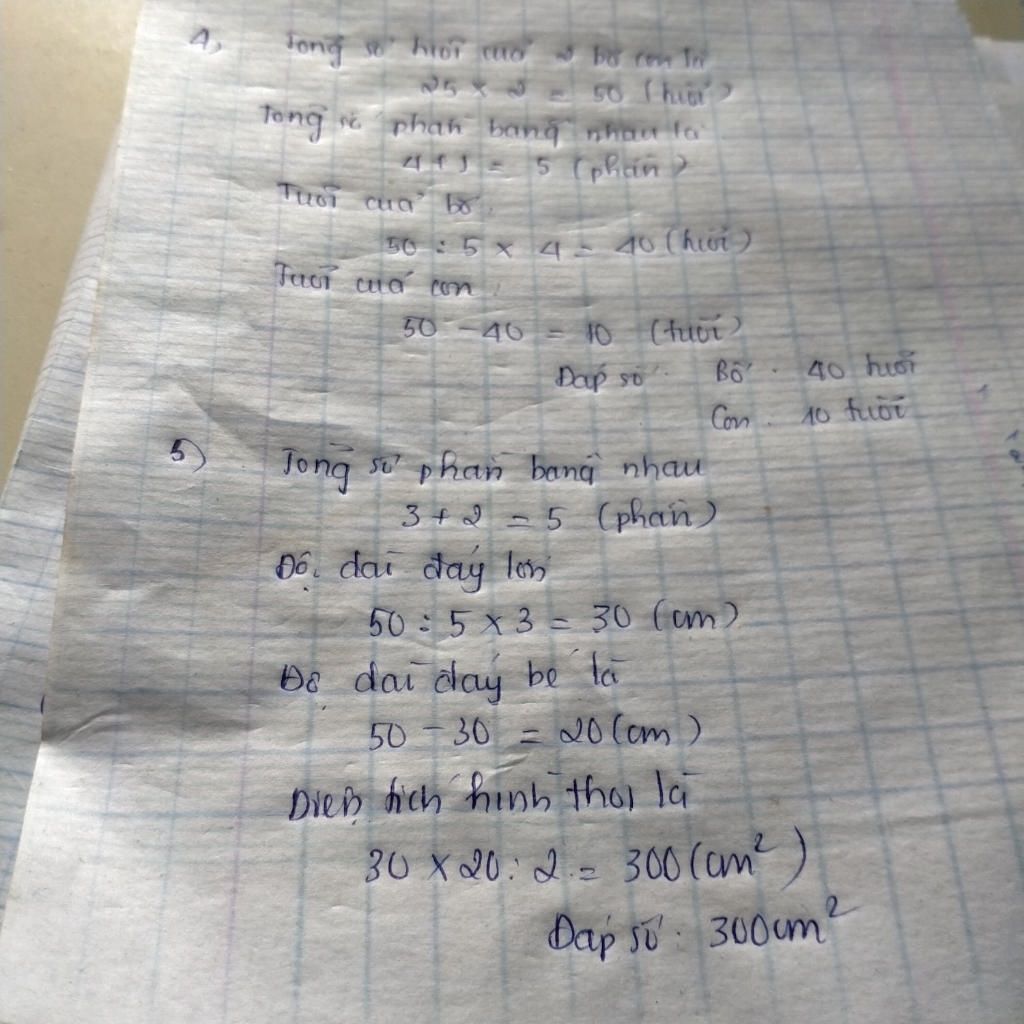 4, Tổng số tuổi của 2 bố con là
25 x 2 = 50 (tuổi)
Tổng số phần bằng nhau là
4 + 1 = 5 (phần)
Tuổi của bố
50 : 5 x 4 = 40 (tuổi)
Tuổi của con
50 - 40 = 10 (tuổi)
Đáp số : Bố : 40 tuổi
Con : 10 tuổi
5) Tổng số phần bằng nhau
3 + 2 = 5 (phần)
Độ dài đáy lớn
50 : 5 x 3 = 30 (cm)
Độ dài đáy bé là
50 - 30 = 20 (cm)
Diện tích hình thoi là
30 x 20 : 2 = 300 (cm²)
Đáp số : 300cm²